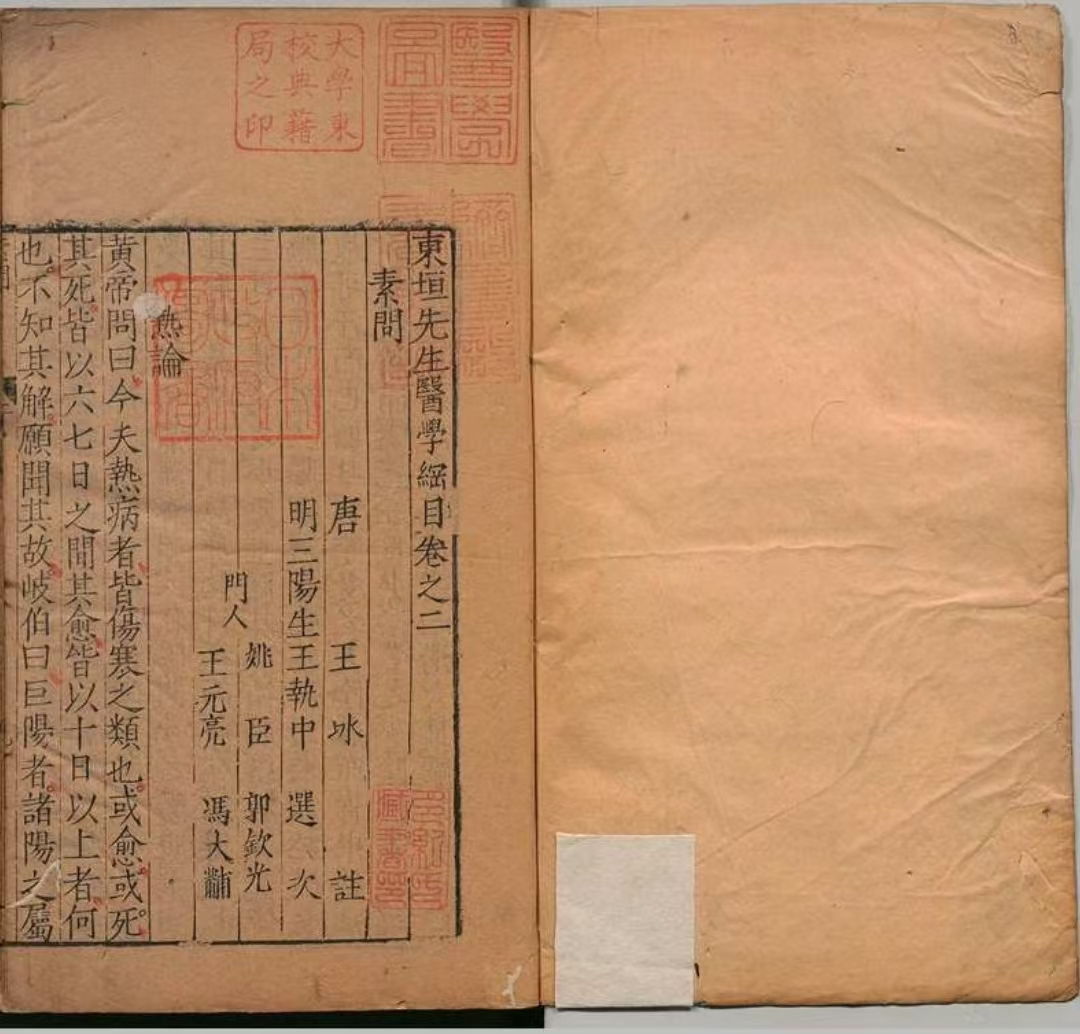 醫學
圖書
大學東
校典籍
局之印
東垣先生醫學綱目卷之二
素問
唐 王 冰 註
明三陽生王執中 選 次
門人 姚 臣 郭欽光
王元亮 馮大黼
熱論
黃帝問曰今夫熱病者皆傷寒之類也或愈或死
其死皆以六七日之間其愈皆以十日以上者何
也不知其解願聞其故岐伯曰巨陽者諸陽之屬